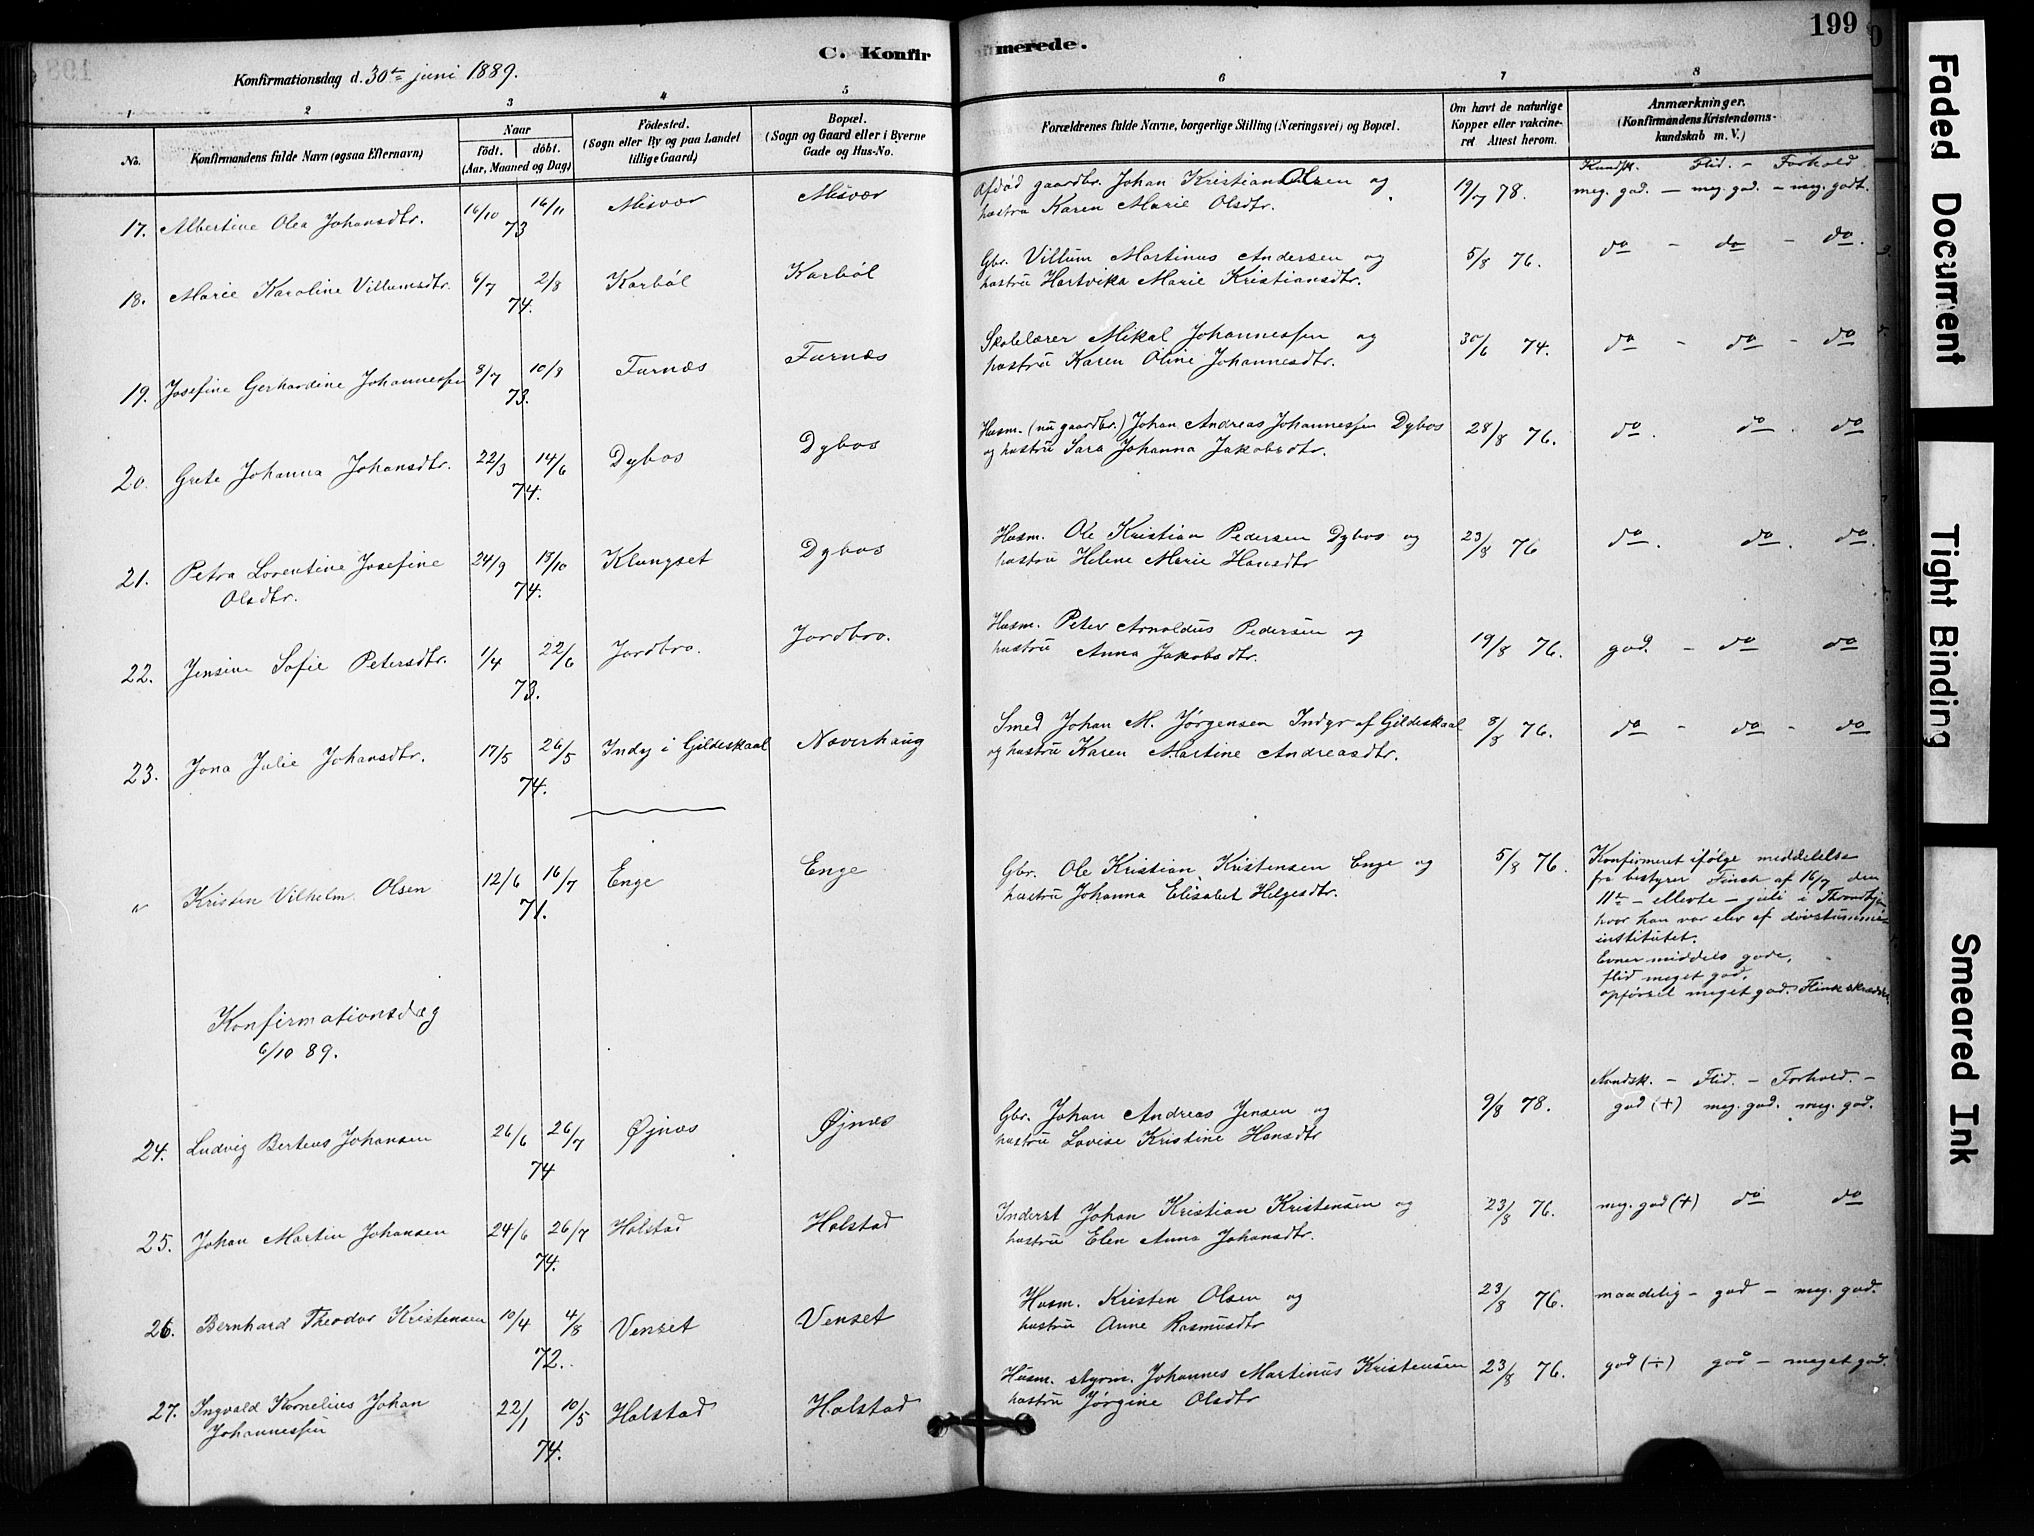 199
C. Konfirmerede.
Konfirmationsdag d. 30te juni 1889.
1 2 3 4 5 6 7 8
No.
Konfirmandens fulde Navn (ogsaa Efternavn)
Naar
födt. döbt.
(Aar, Maaned og Dag)
Födested.
(Sogn eller By og paa Landet
tillige Gaard)
Bopæl.
(Sogn og Gaard eller i Byerne
Gade og Hus-No.
Forældrenes fulde Navne, borgerlige Stilling (Næringsvei) og Bopæl.
Om havt de naturlige
Kopper eller vakcine-
ret Attest herom.
Anmærkninger.
(Konfirmandens Kristendoms-
kundskab m. V.)
Kundsk. Flid. - Forhold.
17. Albertine Olea Johansdtr. 16/10 16/11 73 Misvær Misvær Afdød gaardbr. Johan Kristian Olsen og 19/7 78. meg. god. - meg. god. - meg. godt.
hustru Karen Marie Olsdtr.
18. Marie Karoline Villumsdtr. 6/7 2/8 74. Karböl Karböl Gbr. Villum Martinus Andersen og 5/8 76. do - do - do.
hustru Hartvika Marie Kristiansdtr.
19. Josefine Gerhardine Johannessen 8/7 10/8 73. Furnæs Furnæs Skolelærer Mikal Johannessen og 30/6 74. do - do - do
hustru Karen Oline Johannesdtr.
20. Grete Johanna Johansdtr. 22/3 14/6 74. Dybos Dybos Husm. (nu gaardbr.) Johan Andreas Johannessen Dybos 28/8 76. do. do. do
og hustru Sara Johanna Jakobsdtr.
21. Petra Lorentine Josefine 24/9 13/10 74. Klungset Dybos Husm. Ole Kristian Pedersen Dybos og 23/8 76 do. do. do.
Olsdtr. hustru Helene Marie Hansdtr
22. Jensine Sofie Petersdtr. 1/4 22/6 73. Jordbro. Jordbro. Husm. Peter Arnoldus Pedersen og 19/8 76. god. - do do
hustru Anna Jakobsdtr.
23. Jona Julie Johansdtr. 17/5 26/5 74. Indy i Gildeskaal Naverhaug Smed Johan M. Jørgensen Indyr af Gildeskaal 8/8 76. do - do - do
og hustru Karen Martine Andreasdtr.
" Kristen Vilhelm Olsen 12/6 16/7 71. Enge Enge Gbr. Ole Kristian Kristensen Enge og 5/8 76.
hustru Johanna Elisabet Helgesdtr.
Konfirmeret ifølge meddelelse
fra bestyrer Finch af 16/7 den
11te - ellevte - juli i Throndhjem
hvor han var elev af døvstumme-
institutet.
Evner middels gode,
flid meget god,
opførsel meget god. Flink skrædder.
Konfirmationsdag
6/10 89.
Kundsk. - Flid. - Forhold. -
24. Ludvig Berteus Johansen 26/6 26/7 74 Øjnes Øjnes Gbr. Johan Andreas Jensen og 9/8 78. god (+) meg. god. meg. god.
hustru Lovise Kristine Hansdtr
25. Johan Martin Johansen 24/6 26/7 74. Holstad Holstad Inderst Johan Kristian Kristensen og 23/8 76. meg. god (+) do do
hustru Elen Anna Johansdtr.
26. Bernhard Theodor Kristensen 10/4 4/8 72. Venset Venset Husm. Kristen Olsen og 23/8 76. maadelig - god - meg. god.
hustru Anne Rasmusdtr
27. Ingvald Kornelius Johan 22/1 10/5 74. Holstad Holstad Husm. styrm. Johannes Martinus Kristensen 23/8 76. god (÷) god - meget god.
Johannessen hustru Jørgine Olsdtr
Faded Document
Tight Binding
Smeared Ink